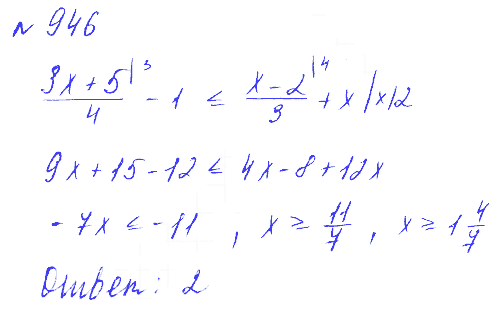 № 946
(3x + 5)/4 |³ - 1 ≤ (x - 2)/3 |⁴ + x |x12
9x + 15 - 12 ≤ 4x - 8 + 12x
- 7x ≤ - 11 , x ≥ 11/7 , x ≥ 1 4/7
Ответ: 2